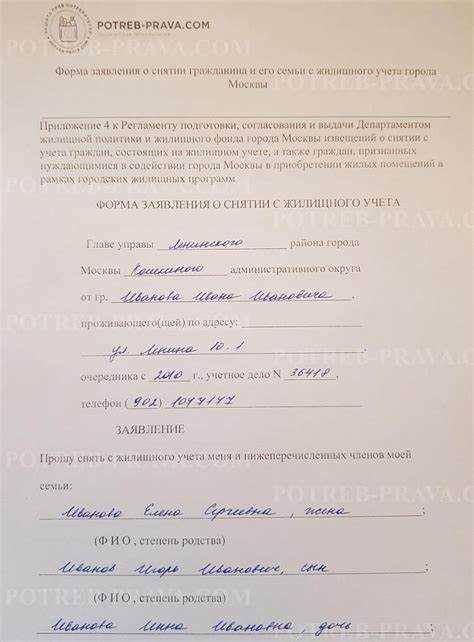 POTREB-PRAVA.COM
Форма заявления о снятии гражданина и его семьи с жилищного учета города
Москвы
Приложение 4 к Регламенту подготовки, согласования и выдачи Департаментом
жилищной политики и жилищного фонда города Москвы извещений о снятии с
учета граждан, состоящих на жилищном учете, а также граждан, признанных
нуждающимися в содействии города Москвы в приобретении жилых помещений в
рамках городских жилищных программ
ФОРМА ЗАЯВЛЕНИЯ О СНЯТИИ С ЖИЛИЩНОГО УЧЕТА
Главе управы Ленинского района города
Москвы Кошкиного административного округа
от гр. Иванова Ивана Ивановича,
проживающего(щей) по адресу:
ул. Ленина 10.1
очередника с 2010 г., учетное дело N 36418,
телефон (902) 1047147
ЗАЯВЛЕНИЕ
Прошу снять с жилищного учета меня и нижеперечисленных членов моей
семьи:
Иванова Елена Сергеевна, жена;
(Ф И О , степень родства)
Иванов Игорь Иванович, сын;
(Ф И О , степень родства)
Иванова Инна Ивановна, дочь;